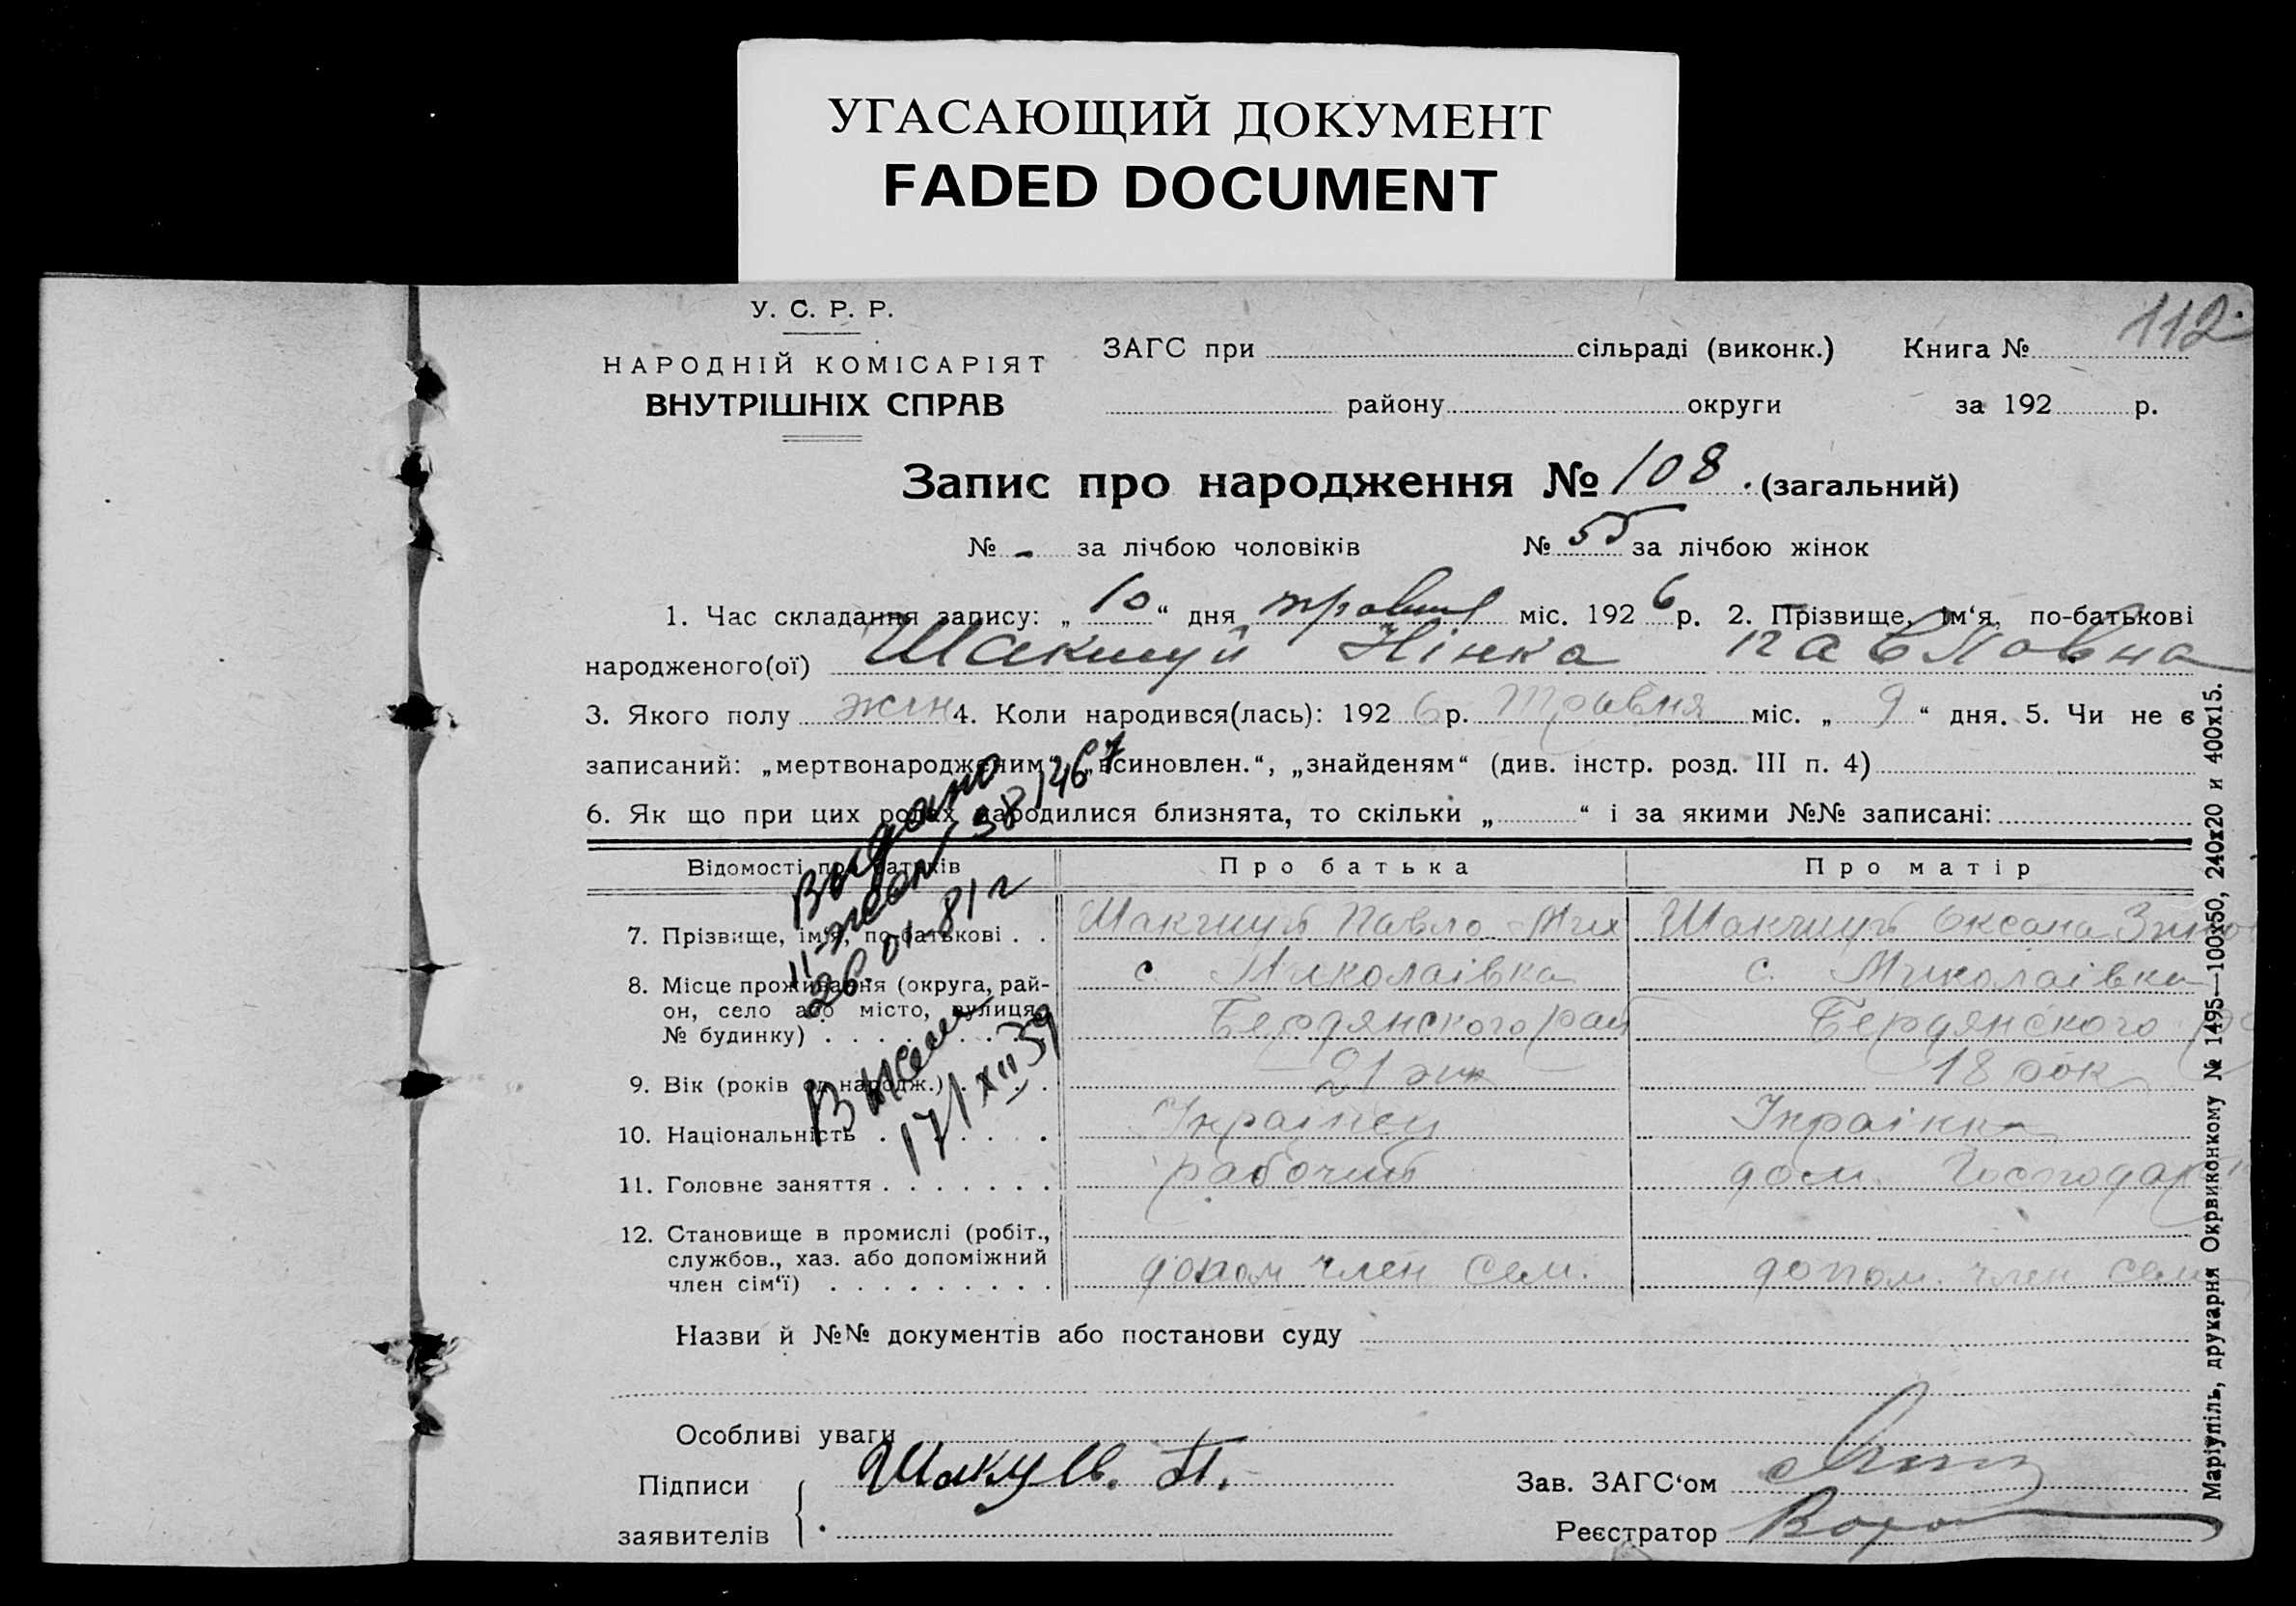 УГАСАЮЩИЙ ДОКУМЕНТ
FADED DOCUMENT
112
У. С. Р. Р.
НАРОДНІЙ КОМІСАРІЯТ
ВНУТРІШНІХ СПРАВ
ЗАГС при сільраді (виконк.) Книга №
району округи за 192 р.
Запис про народження № 108. (загальний)
№ - за лічбою чоловіків № 55 за лічбою жінок
1. Час складання запису: „ 10 “ дня травня міс. 192 6 р. 2. Прізвище, ім‘я, по-батькові
народженого(ої) Нінка Павловна
3. Якого полу жін 4. Коли народився(лась): 192 6 р. Травня міс. „ 9 “ дня. 5. Чи не є
записаний: „мертвонародженим“, „всиновлен.“, „знайденям“ (див. інстр. розд. III п. 4)
6. Як що при цих родах народилися близнята, то скільки „ “ і за якими №№ записані:
Выдано
38/467
26.01-81 г
17/XII 39
Відомості про батьків Про батька Про матір
7. Прізвище, ім‘я, по-батькові . . Павло Мих Оксана
8. Місце проживання (округа, рай- с. Миколаівка с. Миколаівка
он, село або місто, вулиця, Бердянского рай Бердянского
№ будинку) . . . . . . . .
9. Вік (років од народж.) . . . . 21 18 рок
10. Національність . . . . . Українец Українка
11. Головне заняття . . . . . . . рабочий дом. Господар
12. Становище в промислі (робіт.,
службов., хаз. або допоміжний допом член сем. допом. член сем
член сім‘ї) . . . . . . . . .
Назви й №№ документів або постанови суду
Особливі уваги
Підписи П. Зав. ЗАГС‘ом
заявителів Реєстратор
Маріупіль, друкарня Окрвиконкому № 1495—100х50, 240х20 и 400х15.